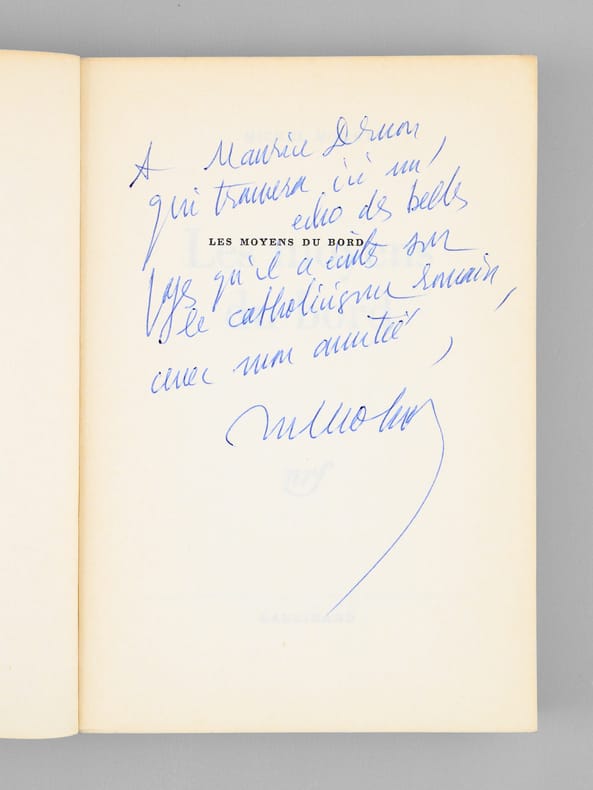 A Maurice Druon,
qui trouvera ici un
echo des belles
LES MOYENS DU BORD
pages qu'il a écrits sur
le catholicisme romain,
avec mon amitié,